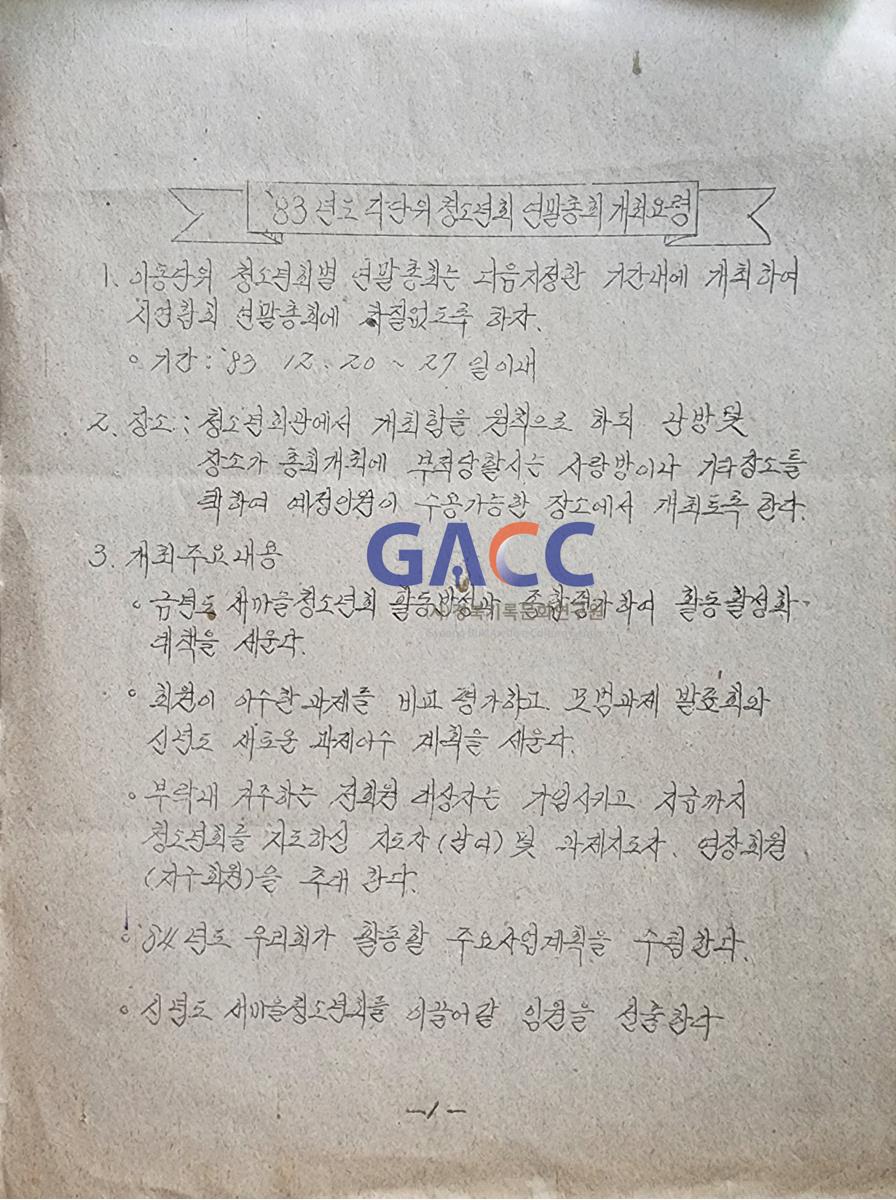 '83년도 각단위 청소년회 연말총회 개최요령
1. 이동단위 청소년회별 연말총회는 다음지정한 기간내에 개최하여
시연합회 연말총회에 차질없도록 하자.
○ 기간 : '83 12. 20 ~ 27 일이내
2. 장소 : 청소년회관에서 개최함을 원칙으로 하되 난방및
장소가 총회개최에 부적당할시는 사랑방이나 기타장소를
택하여 예정인원이 수용가능한 장소에서 개최토록 한다.
3. 개최주요내용
GACC
○ 금년도 새마을청소년회 활동방침과 종합평가하여 활동활성화
경북기록문화연구원
대책을 세운다.
○ 회원이 이수한 과제를 비교 평가하고 모범과제 발표회와
신년도 새로운 과제이수 계획을 세운다.
○ 부락내 거주하는 전회원 대상자는 가입시키고 지금까지
청소년회를 지도하신 지도자(남여) 및 과제지도자. 연장회원
(지구회원)을 추대 한다.
○ '84년도 우리회가 활동할 주요사업계획을 수립한다.
○ 신년도 새마을청소년회를 이끌어갈 임원을 선출한다
-1-